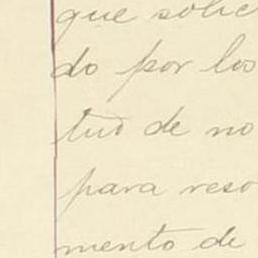 que solic
do por los
tud de no
para reso
mento de